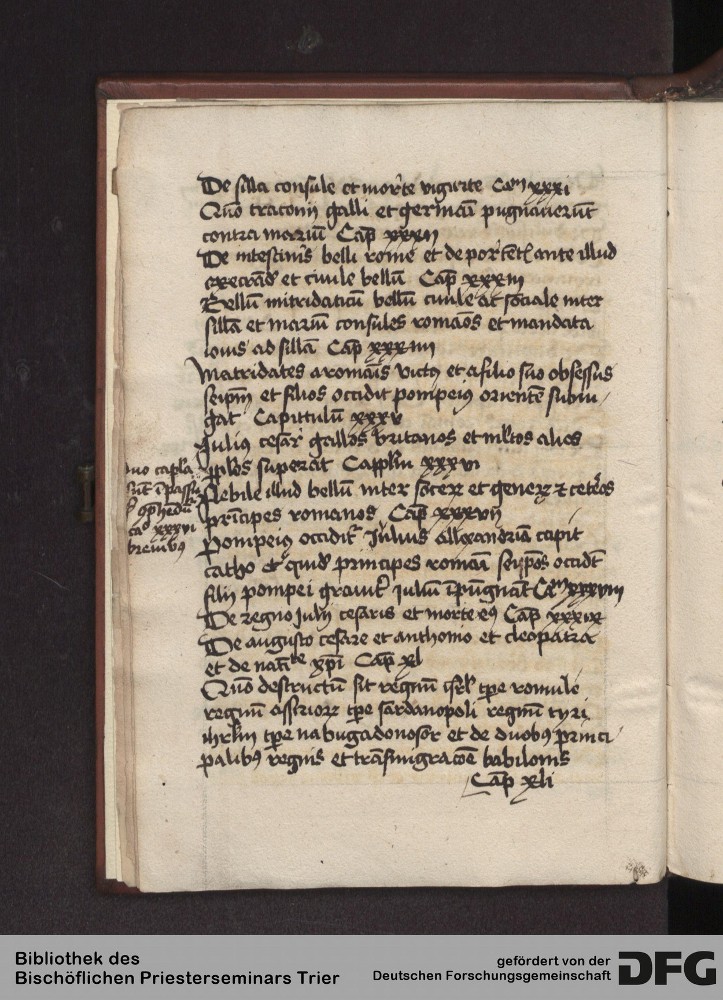 De silla consule et morte vigurte Cam xxxi
Quo traconij galli et germani pugnauerut
contra mariu Cap xxxii
De intestinis belli rome et de portet ante illud
execrad et ciuile bellu Cap xxxiii
Bellu mitridaticu bellu ciuile at sociale inter
silla et mariu consules romanos et mandata
iouis ad silla Cap xxxiiii
Matridates a romanis victus et a filio suo obsessus
seipm et filios occidit pompeius oriente subiu
gat Capittulu xxxv
Julius cesar gallos britanos et mltos alios
pplos superat Capplm xxxvi
duo capla
sut i passu
Flebile illud bellu inter soceru et generu et ceteros
principes romanos Cap xxxvii
ca xxxvi
breuibus
Pompeius occidit Julius allexandriam capit
catho et quid principes romani seipsos occidt
filij pompei grauit juliu ipugnat Cam xxxviii
De regno Julij cesaris et morte eius Cap xxxix
De augusto cesare et anthonio et cleopatra
et de natite xpi Cap xl
Quo destructu sit regnu isrl tpe romule
regnu assirioru tpe sardanopoli regnu tyri
ihrlm tpe nabugadonosor et de duobus princi
palibus regnis et transmigracoe babilonis
Cap xli
Bibliothek des
Bischöflichen Priesterseminars Trier
gefördert von der
Deutschen Forschungsgemeinschaft DFG